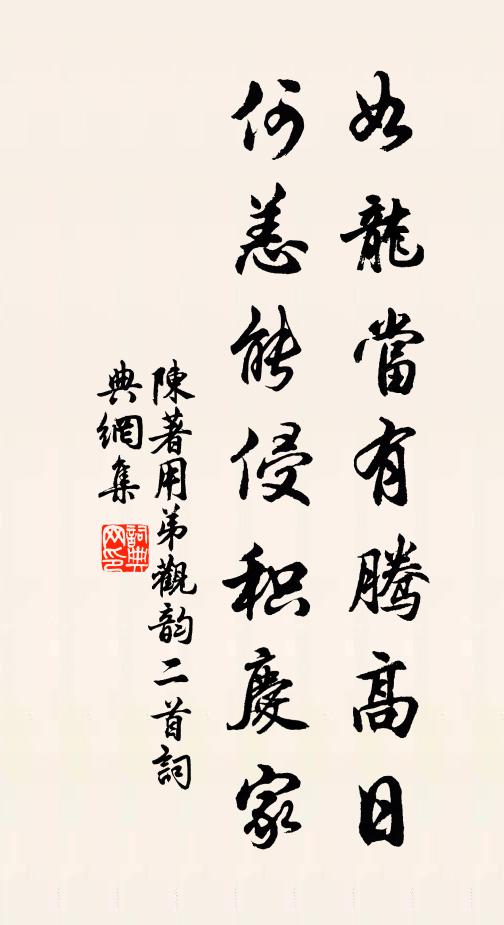 如龍當有騰高日
何恙能侵积慶家
陳著用弟觀韵二首詞
典網集
詞典
网印